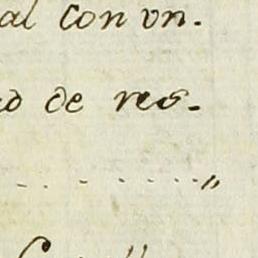 al con vn.
o de res.
. . . . . . . „